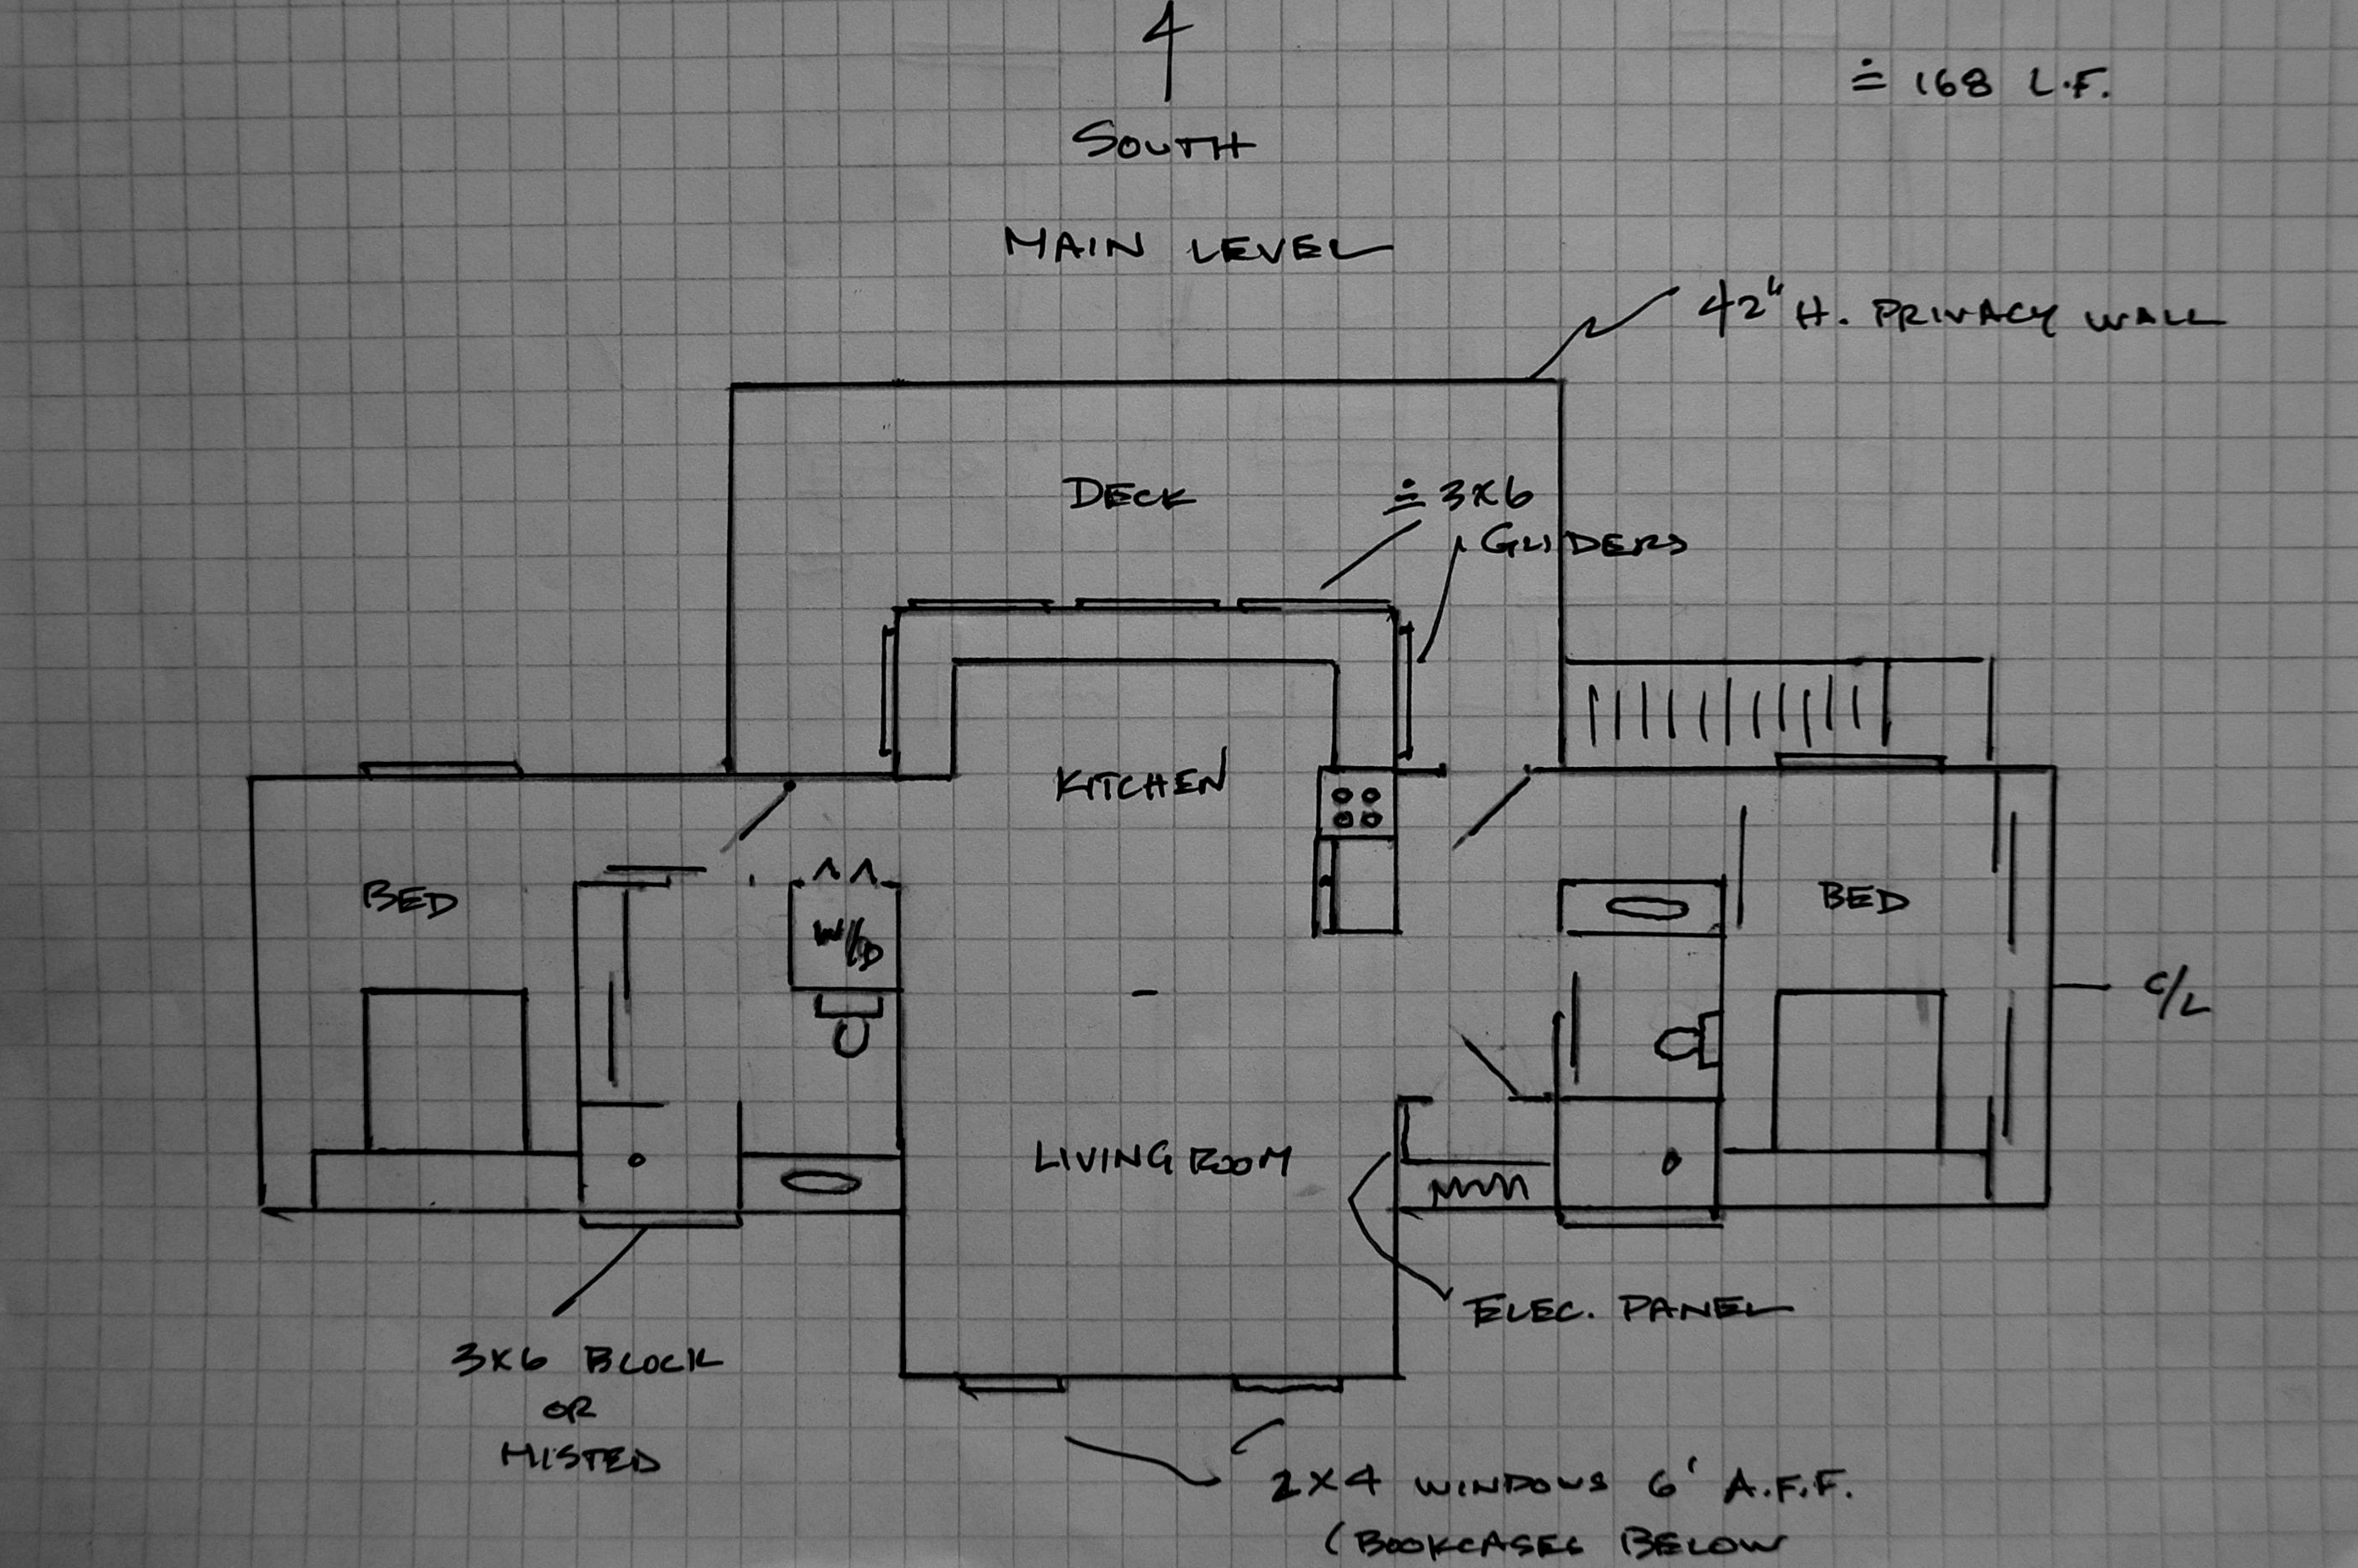 ≐ 168 L.F.
SOUTH
MAIN LEVEL
42" H. PRIVACY WALL
DECK
≐ 3X6
GLIDERS
KITCHEN
BED
W/D
BED
C/L
LIVING ROOM
ELEC. PANEL
3X6 BLOCK
OR
MISTED
2X4 WINDOWS 6' A.F.F.
(BOOKCASES BELOW